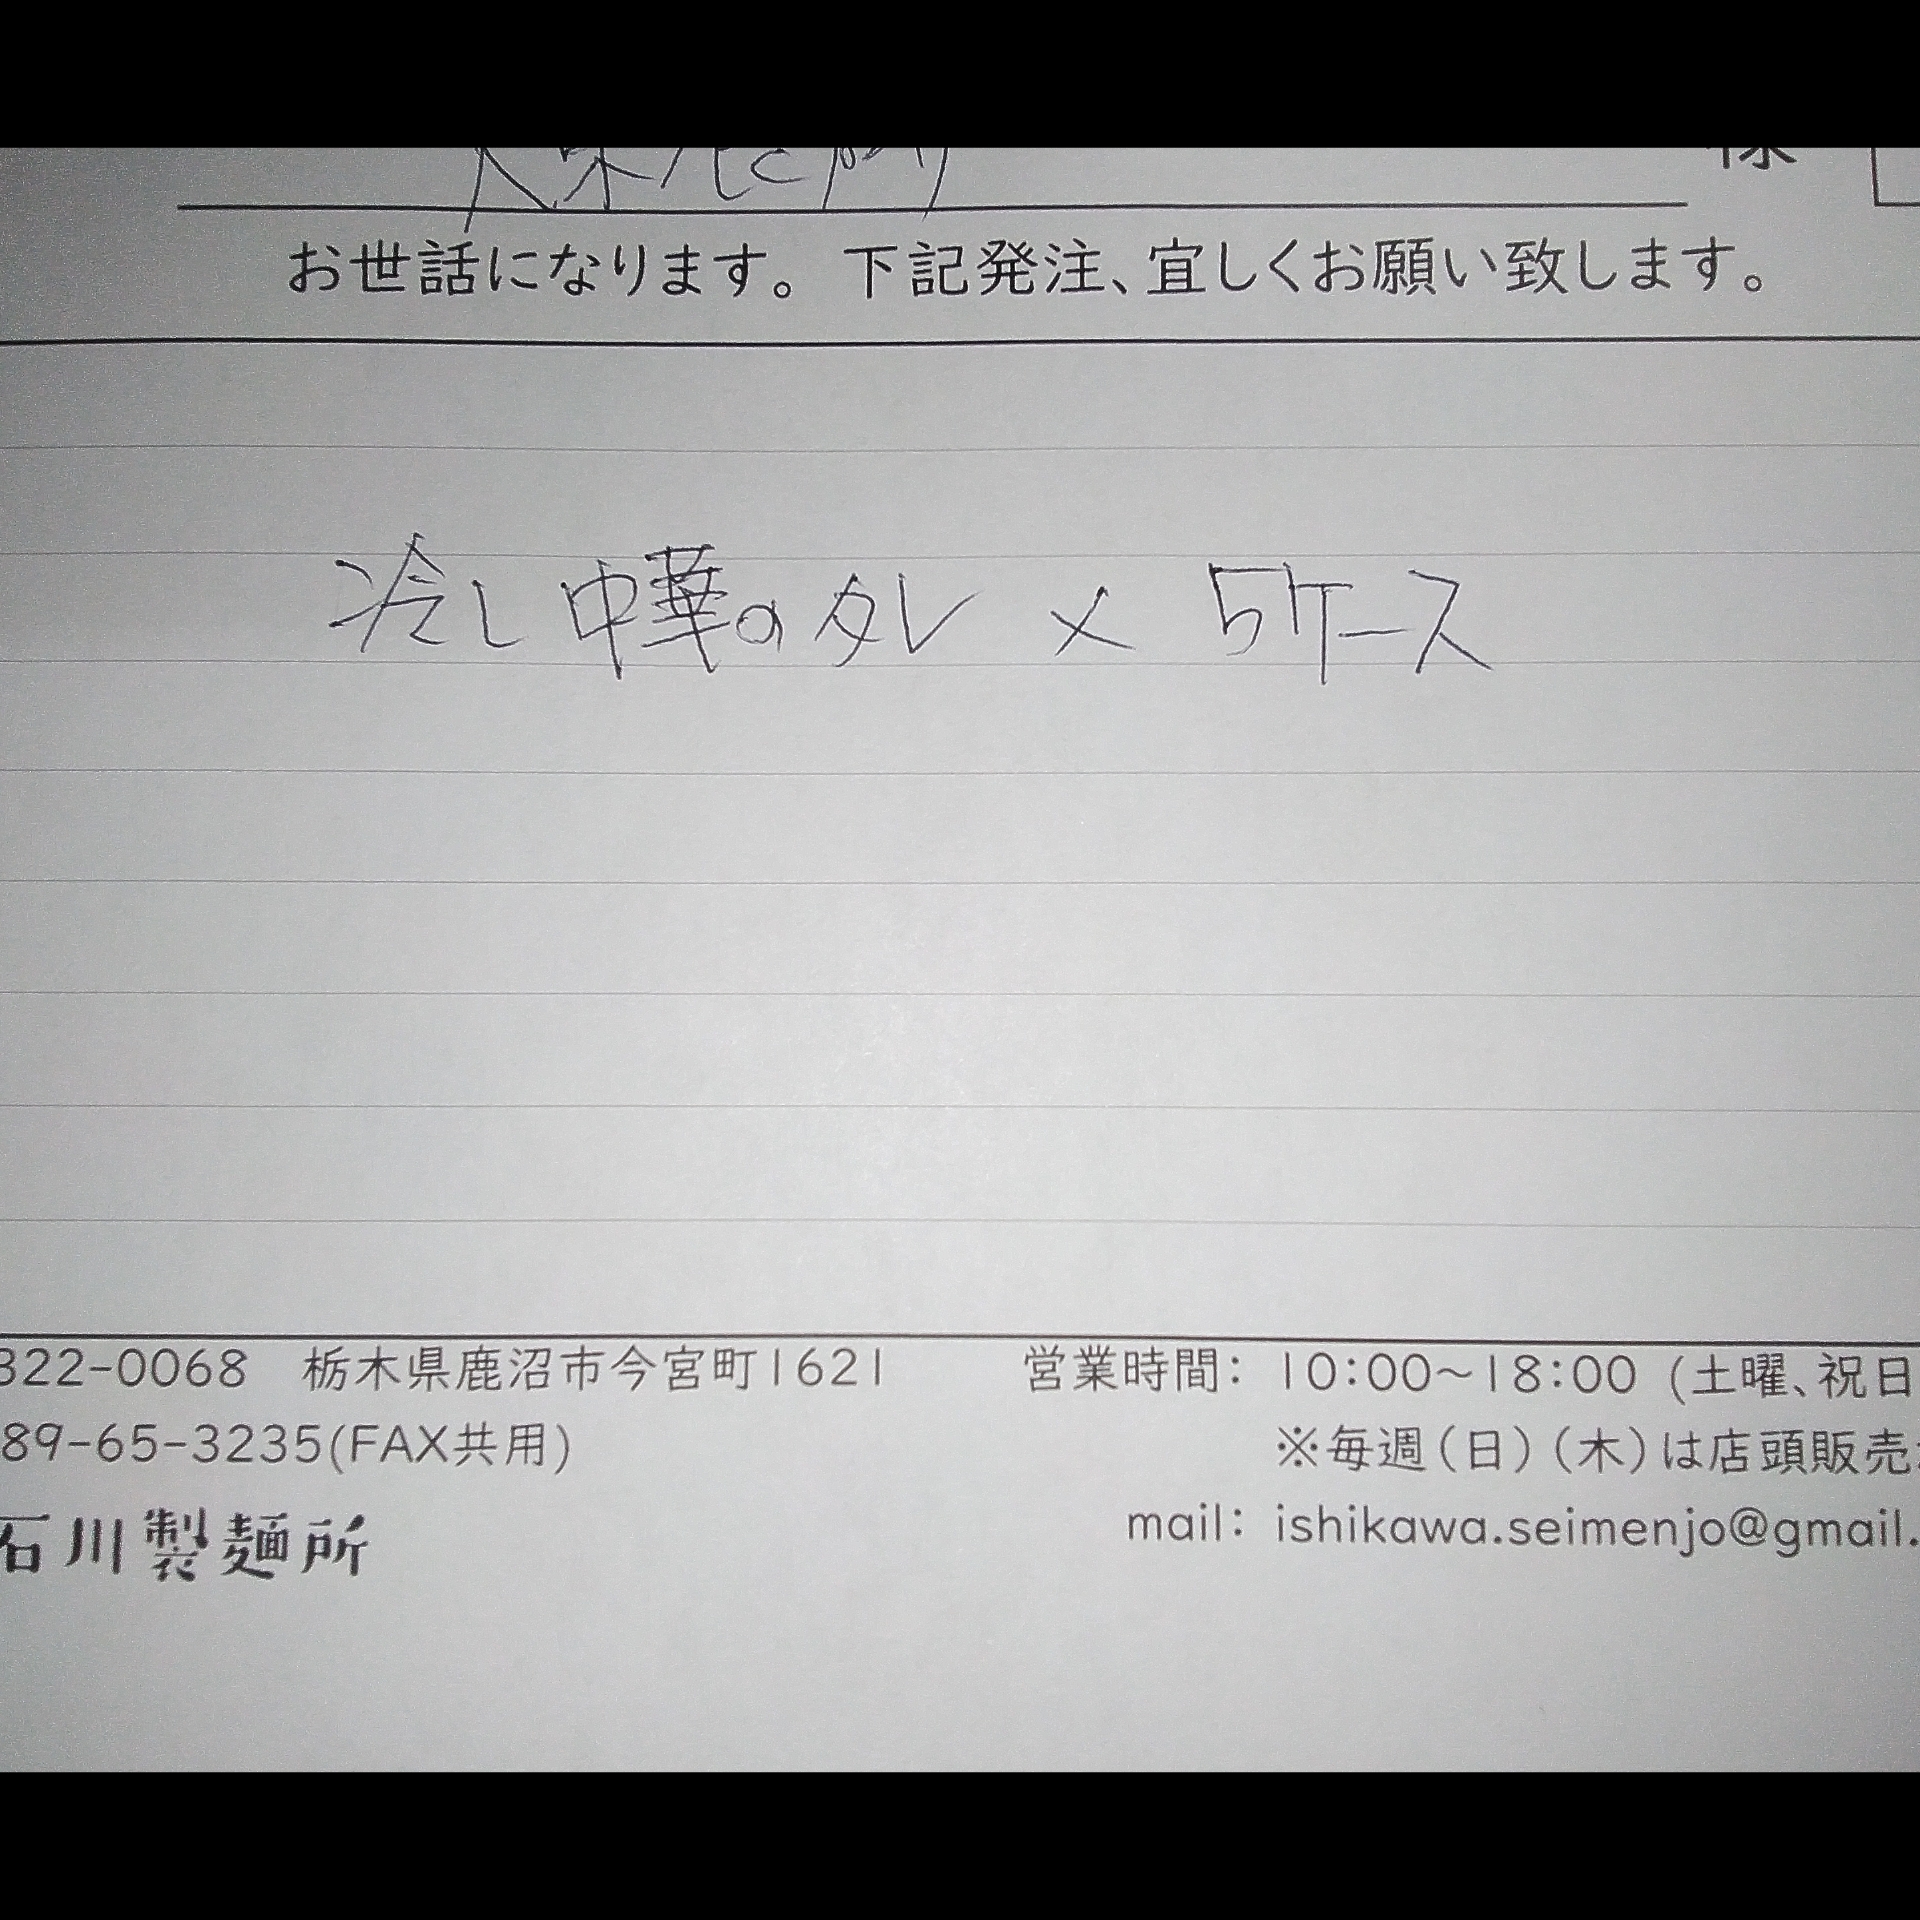 様
お世話になります。下記発注、宜しくお願い致します。
冷し中華のタレ × 5ケース
322-0068 栃木県鹿沼市今宮町1621
営業時間: 10:00~18:00 (土曜、祝日
89-65-3235(FAX共用)
※毎週(日)(木)は店頭販売
石川製麺所
mail: ishikawa.seimenjo@gmail.